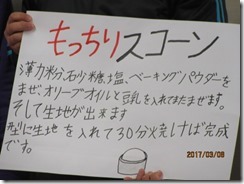 もっちりスコーン
薄力粉、砂糖、塩、ベーキングパウダーを
まぜ、オリーブオイルと豆乳を入れてまたまぜます。
そして生地が出来ます
型に生地を入れて30分焼けば完成
です。
2017/03/08